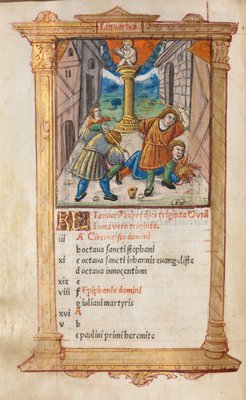 Januarius
Januari' habet dies triginta. Luna
luna vero triginta.
iii A Circuncisio domini
b octava sancti stephani
xi c octava sancti iohannis euangeliste
d octava innocentum
xix e
viii f Epiphania domini
g iuliani martyris
xvi A
v b
c paulini primi heremite